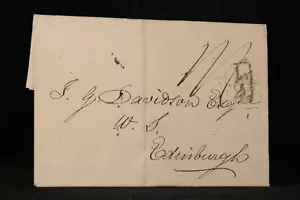 J. G. Davidson Esqr.
W. S.
Edinburgh